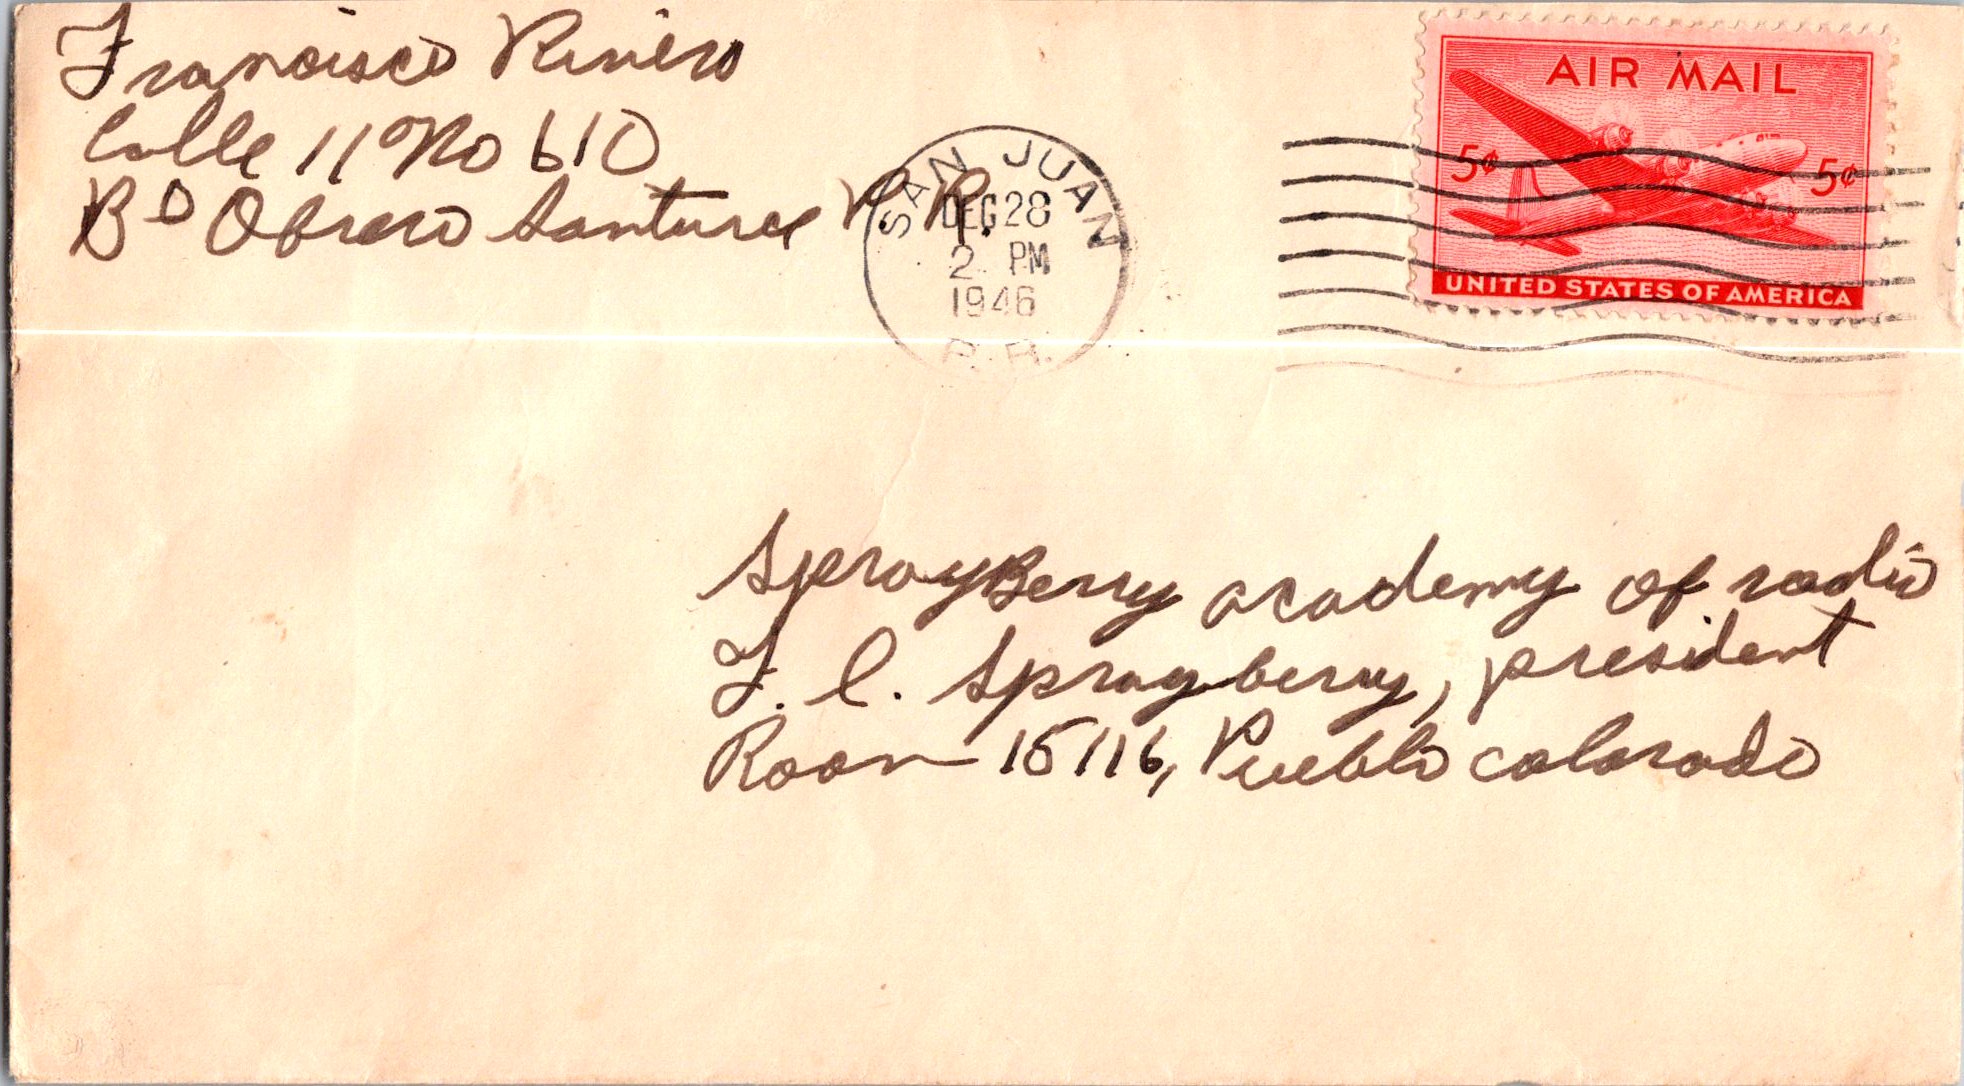 Francisco Rivero
Calle 11 No 610
Bo Obrero Santurce P. R.
SAN JUAN
DEC 28
2 PM
1946
P.R.
AIR MAIL
5¢ 5¢
UNITED STATES OF AMERICA
SprayBerry academy of radio
F. L. Sprayberry, president
Room 15116, Pueblo colorado